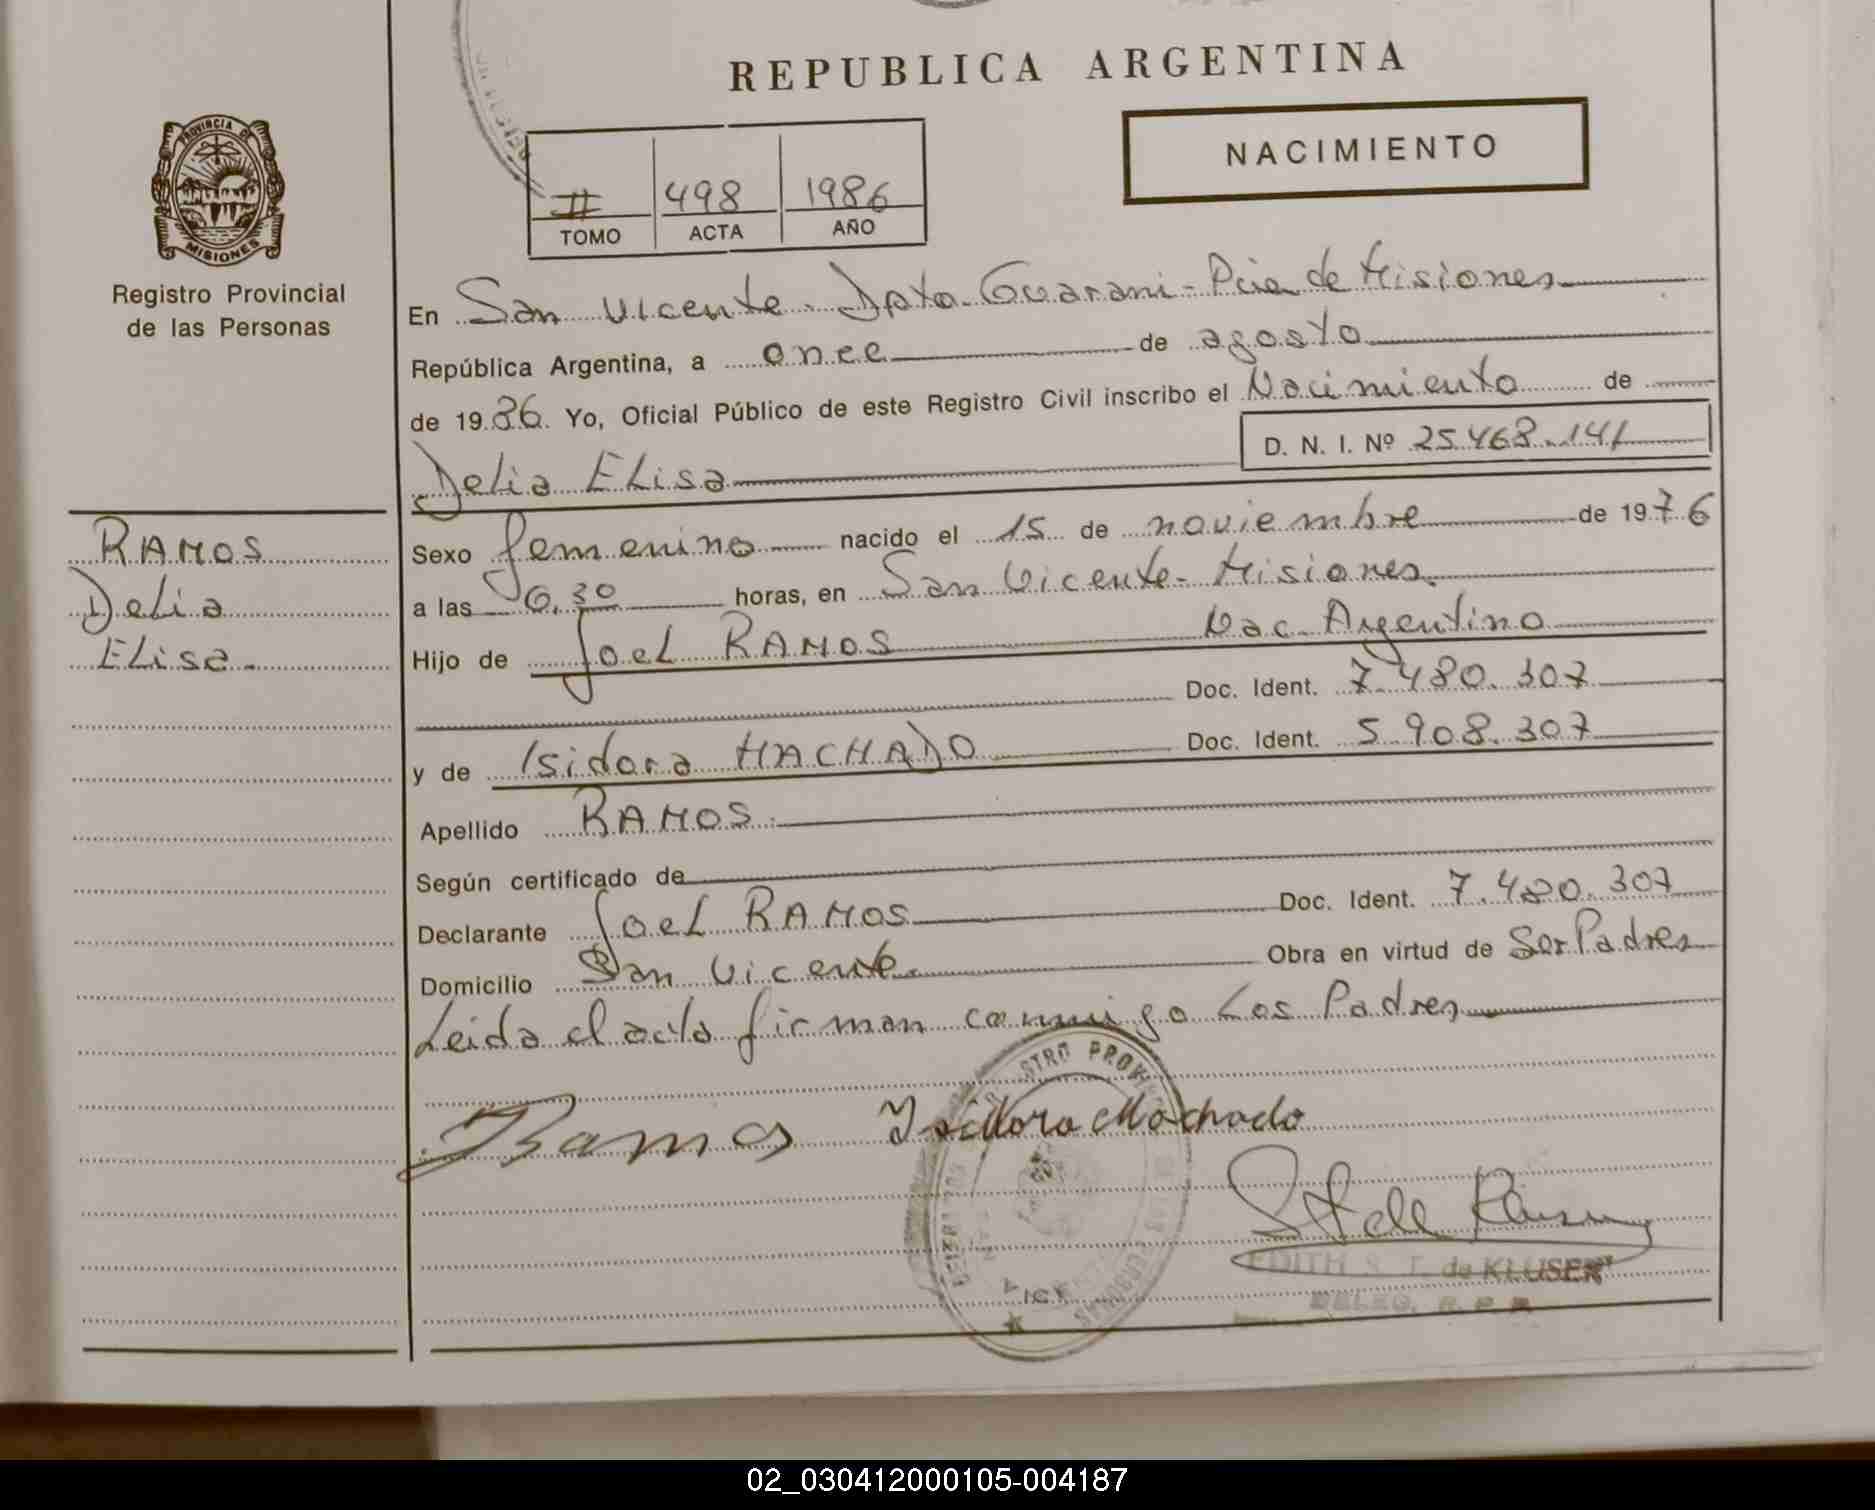 REPUBLICA ARGENTINA
NACIMIENTO
II 498 1986
TOMO ACTA AÑO
PROVINCIA DE
MISIONES
Registro Provincial
de las Personas
RAMOS
Delia
Elisa.
En San Vicente - Dpto Guarani - Pcia de Misiones
República Argentina, a once de agosto
de 1986. Yo, Oficial Público de este Registro Civil inscribo el Nacimiento de
Delia Elisa D. N. I. Nº 25.468.141
Sexo femenino nacido el 15 de noviembre de 1976
a las 6,30 horas, en San Vicente - Misiones.
Hijo de Joel RAMOS Nac. Argentino
Doc. Ident. 7.480.307
y de Isidora MACHADO Doc. Ident. 5.908.307
Apellido RAMOS.
Según certificado de
Declarante Joel RAMOS Doc. Ident. 7.480.307
Domicilio San Vicente. Obra en virtud de Ser Padres
Leida el acta firman conmigo Los Padres
Ramos Isidora Machado
STRO PROVIN
EDITH S. T. de KLUSER
DELEG. R. P. P.
02_030412000105-004187